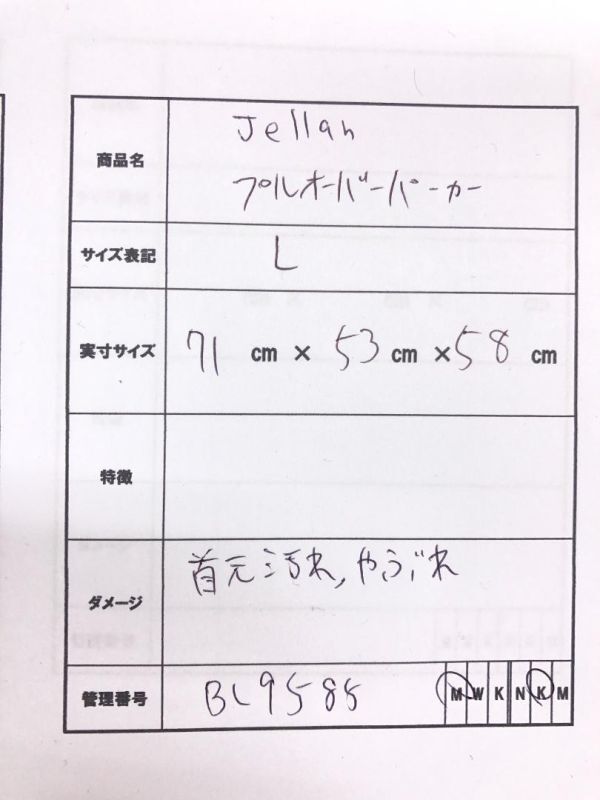 商品名
Jellan
プルオーバーパーカー
サイズ表記
L
実寸サイズ
71 cm × 53 cm × 58 cm
特徴
ダメージ
首元汚れ, やぶれ
管理番号
BL9588
M W K N K M